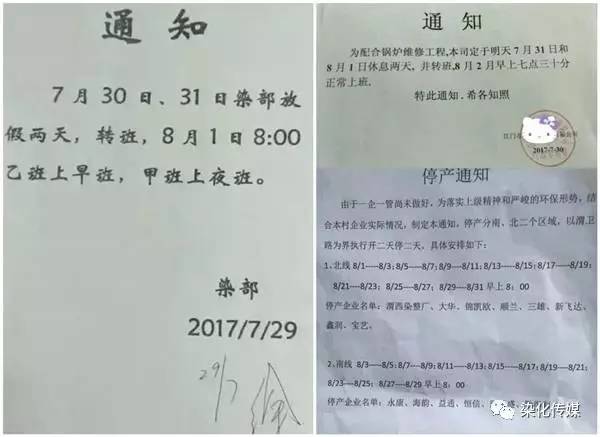 通知
7月30日、31日染部放
假两天，转班，8月1日8:00
乙班上早班，甲班上夜班。
染部
2017/7/29
29/7
通知
为配合锅炉维修工程,本司定于明天7月31日和
8月1日休息两天, 并转班,8月2日早上七点三十分
正常上班.
特此通知.希各知照
江门市
2017-7-30
停产通知
由于一企一管尚未做好，为落实上级精神和严峻的环保形势，结
合本村企业实际情况，制定本通知，停产分南、北二个区域，以渭卫
路为界执行开二天停二天，具体安排如下：
1、北线 8/1-----8/3；8/5-----8/7；8/9----8/11；8/13-----8/15；8/17-----8/19；
8/21----8/23；8/25----8/27；8/29----8/31 早上 8：00
停产企业名单：渭西染整厂、大华、锦凯欧、顺兰、三雄、新飞达、
鑫润、宝艺、
2、南线 8/3----8/5；8/7----8/9；8/11----8/13；8/15----8/17；8/19----8/21；
8/23----8/25；8/27----8/29 早上 8：00
停产企业名单：永康、海韵、益通、恒信、
染化传媒